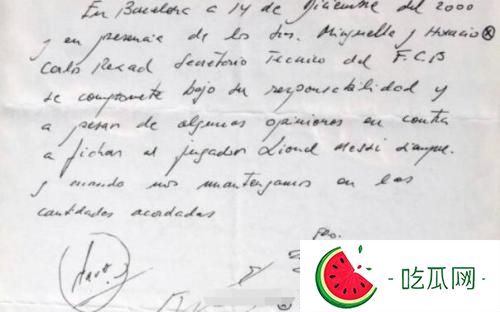 En Barcelona a 14 de Diciembre del 2000
y en presencia de los Sres. Minguella y Horacio
Carlo Rexad Secretario Tecnico del F.C.B
se compromete bajo su responsabilidad y
a pesar de algunas opiniones en contra
a fichar al jugador Lionel Messi siempre
y cuando nos mantengamos en las
cantidades acordadas
吃瓜网